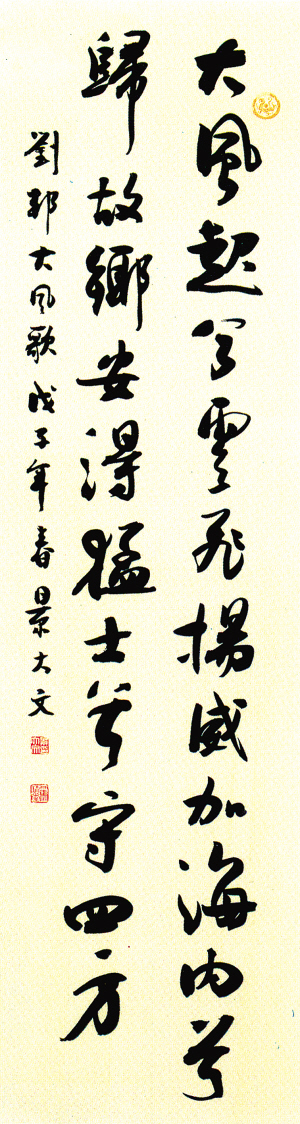 大風起兮雲飛揚威加海内兮
歸故鄉安得猛士兮守四方
劉邦大風歌戊子年春景大文